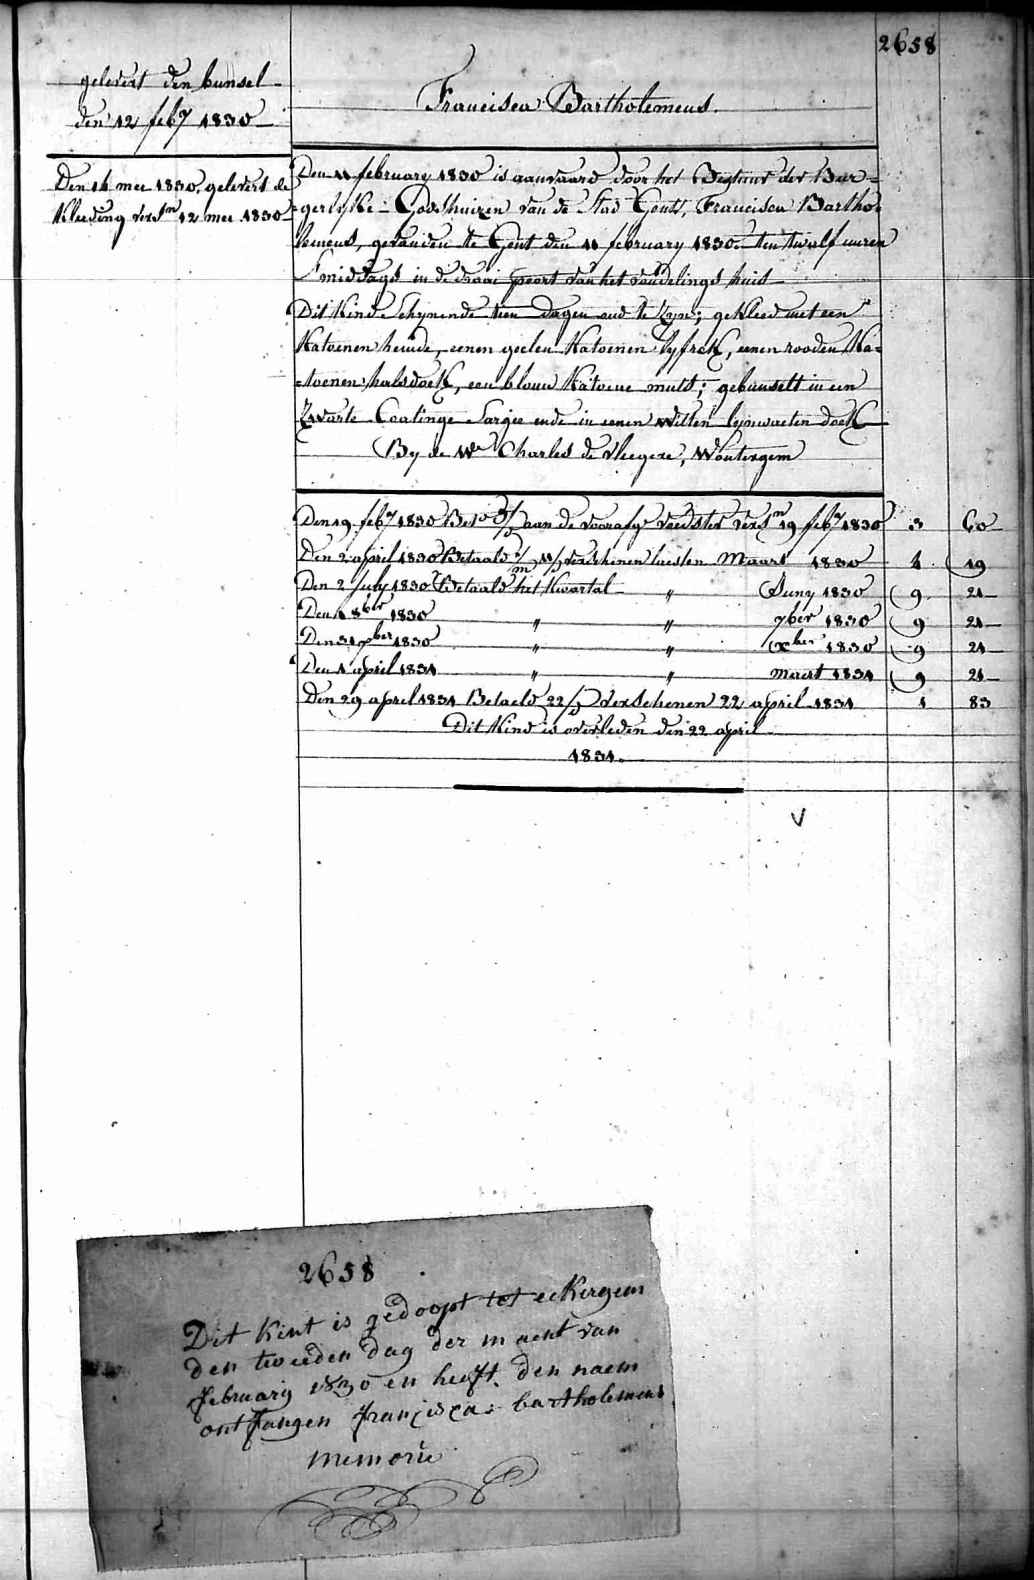 2658
gelevert den bunsel
den 12 feb.y 1830
Francisca Bartholemeus.
Den 14 mei 1830, gelevert de
kleeding vers.m 12 mei 1830
Den 11 february 1830 is aanvaard door het Bestuur der Bur=
gerlyke Godshuizen van de Stad Gent, Francisca Bartho=
lemeus, gevonden te Gent den 11 february 1830 ten twalf uuren
S'middags in de draai poort van het vondelings huis
Dit Kind Schynende tien dagen oud te zyn; gekleed met een
Katoenen hemde, eenen geelen Katoenen lyfrok, eenen rooden Ka=
toenen halsdoek, een blouw Katoene muts; gebunselt in een
Zwarte Coatinge Sargie ende in eenen witten lynwaeten doek
By de We Charles de Vleegere, Wontergem
Den 19 feb.y 1830 Bet.d aan de voorafg.e voedster vers.m 19 feb.y 1830 3 60
Den 2 april 1830 Betaald verschenen laesten Maart 1830 4 19
Den 2 July 1830 Betaald het Kwartal " Juny 1830 9 21
Den 1 8ber 1830 " " 7ber 1830 9 21
Den 31 xber 1830 " " xber 1830 9 21
Den 1 april 1831 " " maart 1831 9 21
Den 29 april 1831 Betaeld 22/ verschenen 22 april 1831 1 83
Dit Kind is overleden den 22 april
1831.
2658
Dit kint is gedoopt tot eckergem
den tweeden dag der maent van
februarij 1830 en heeft den naem
ontfangen francisca bartholemeus
memorie